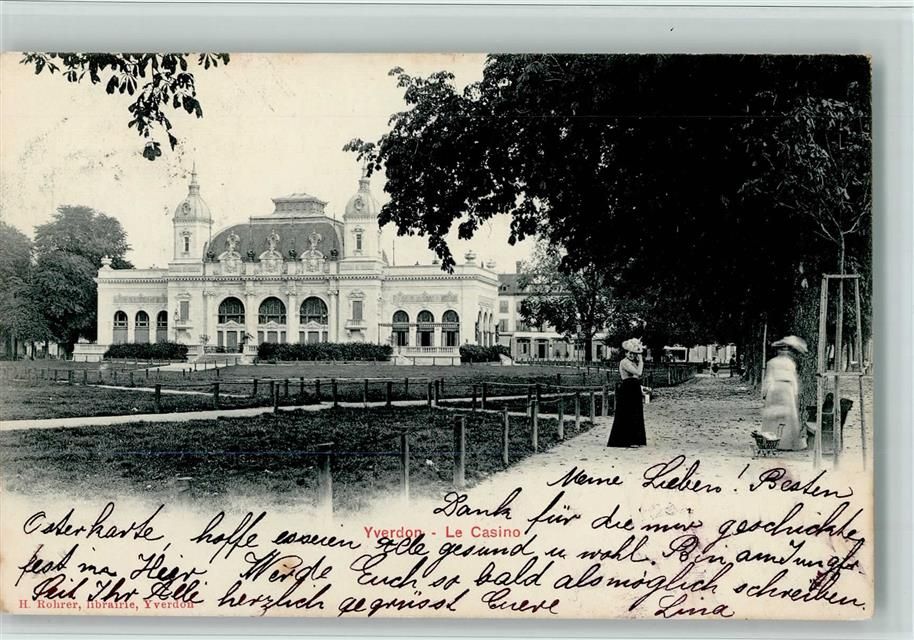 Meine Lieben! Besten
Dank für die mir geschickte
Osterkarte, hoffe Alle gesund u wohl. Bin
fest in Hier. Werde Euch so bald als möglich schreiben.
Seit Ihr Alle herzlich gegrüsst Euere Lina
Yverdon - Le Casino
H. Rohrer, librairie, Yverdon